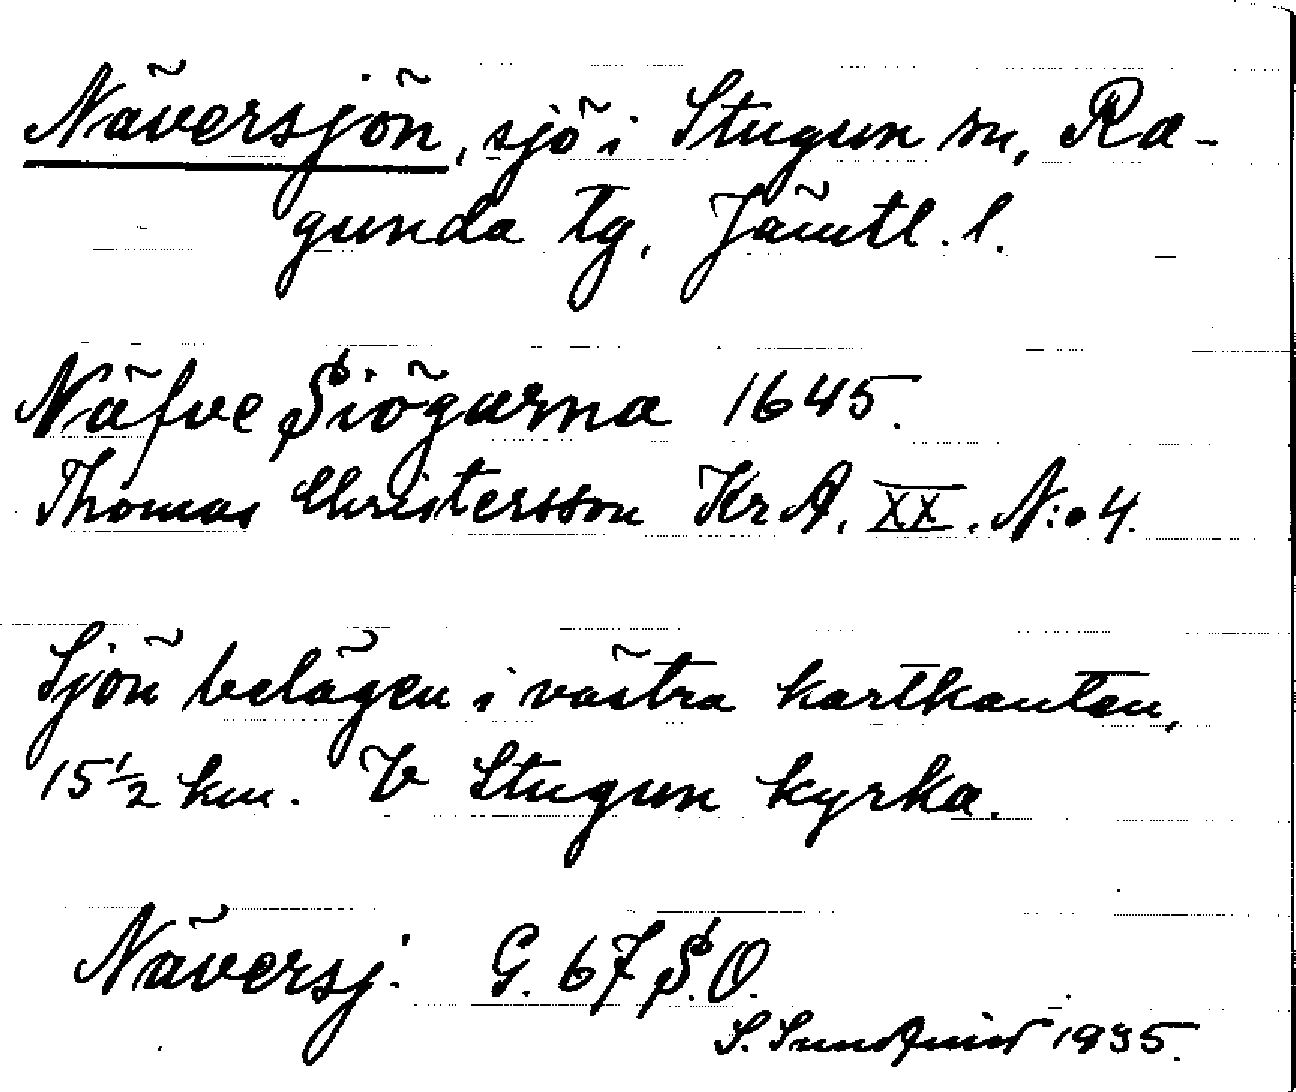 Näversjön, sjö i Stugun sn, Ra-
gunda tg, Jämtl. l.
Näfve Siögarna 1645.
Thomas Christersson Kr A. XX. N:o 4.
Sjön belägen i västra kartkanten,
15 1/2 km. V Stugun kyrka.
Näversj. G. 67 S.O.
S. Sundqvist 1935.